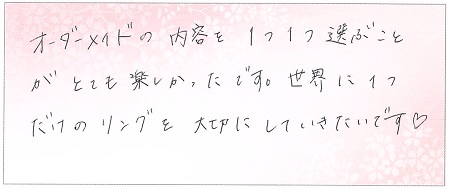 オーダーメイドの 内容を 1つ1つ 選ぶこと
が とても 楽しかったです。世界に1つ
だけの リングを 大切に していきたいです♡